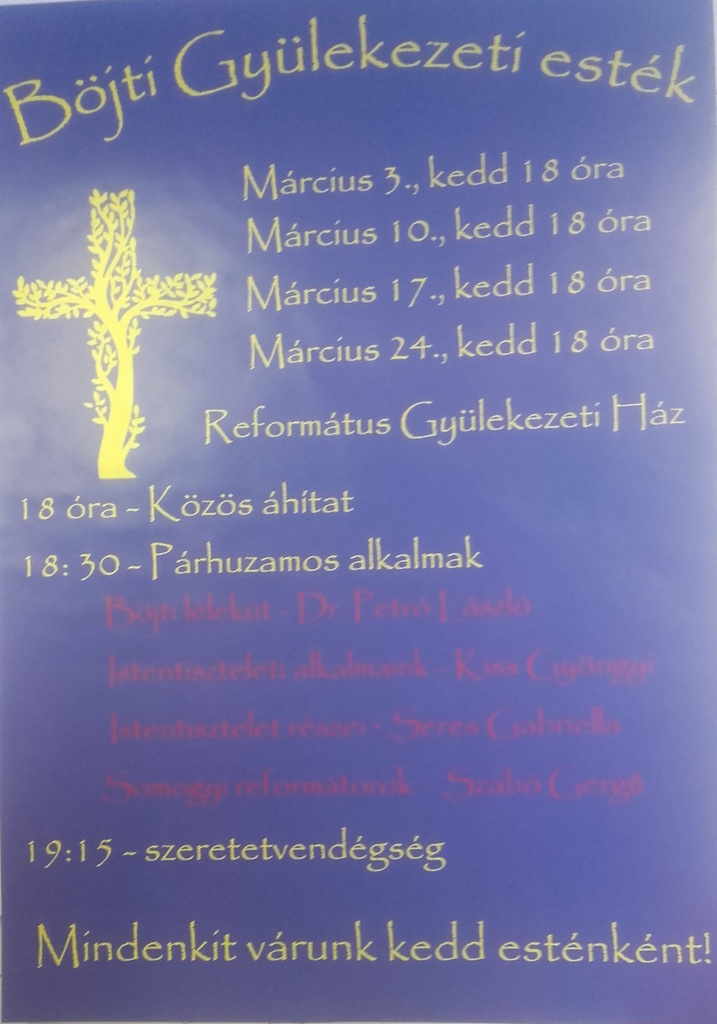 Böjti Gyülekezeti esték
Március 3., kedd 18 óra
Március 10., kedd 18 óra
Március 17., kedd 18 óra
Március 24., kedd 18 óra
Református Gyülekezeti Ház
18 óra - Közös áhítat
18:30 - Párhuzamos alkalmak
Böjti lélekút - Dr. Petró László
Istentiszteleti alkalmaink - Kiss Gyöngyi
Istentisztelet részei - Seres Gabriella
Somogyi reformátorok - Szabó Gergő
19:15 - szeretetvendégség
Mindenkit várunk kedd esténként!